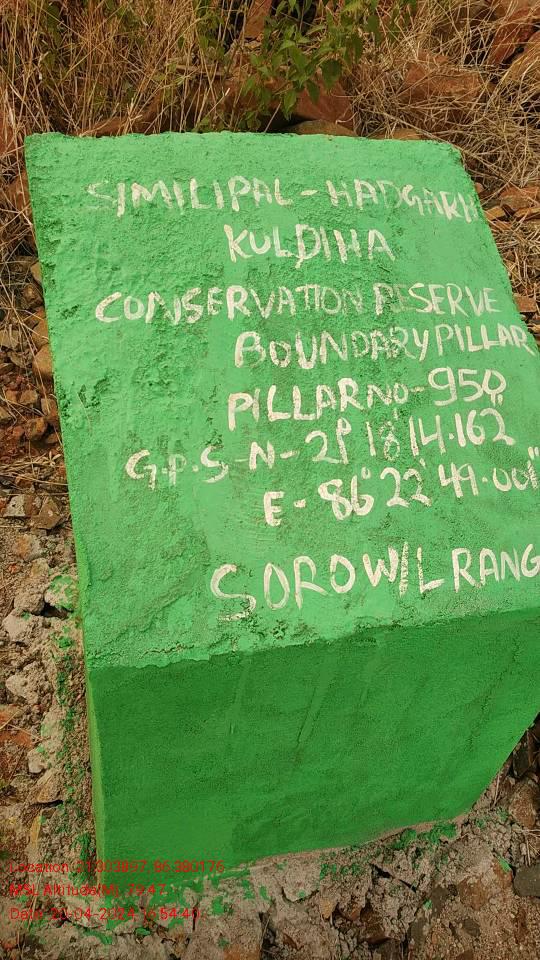 SIMILIPAL-HADGARH
KULDIHA
CONSERVATION RESERVE
BOUNDARY PILLAR
PILLAR NO-950
G.P.S-N-21° 18' 14.162"
E-86° 22' 49.001"
SORO W/L RANG
Location: 21.303897, 86.380176
MSL Altitude(M):
Date: 20-04-2024